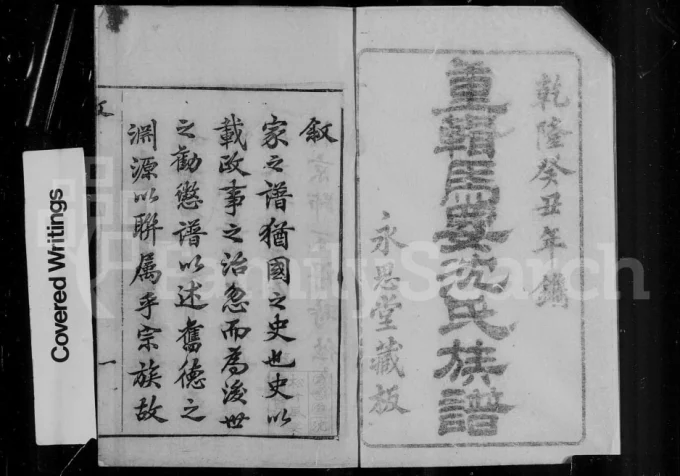 乾隆癸丑年鐫
重輯馬要沈氏族譜
永思堂藏板
敘
家之譜猶國之史也史以
載政事之治忽而爲後世
之勸懲譜以述舊德之
淵源以聯属乎宗族故
一
Covered Writings
FamilySearch